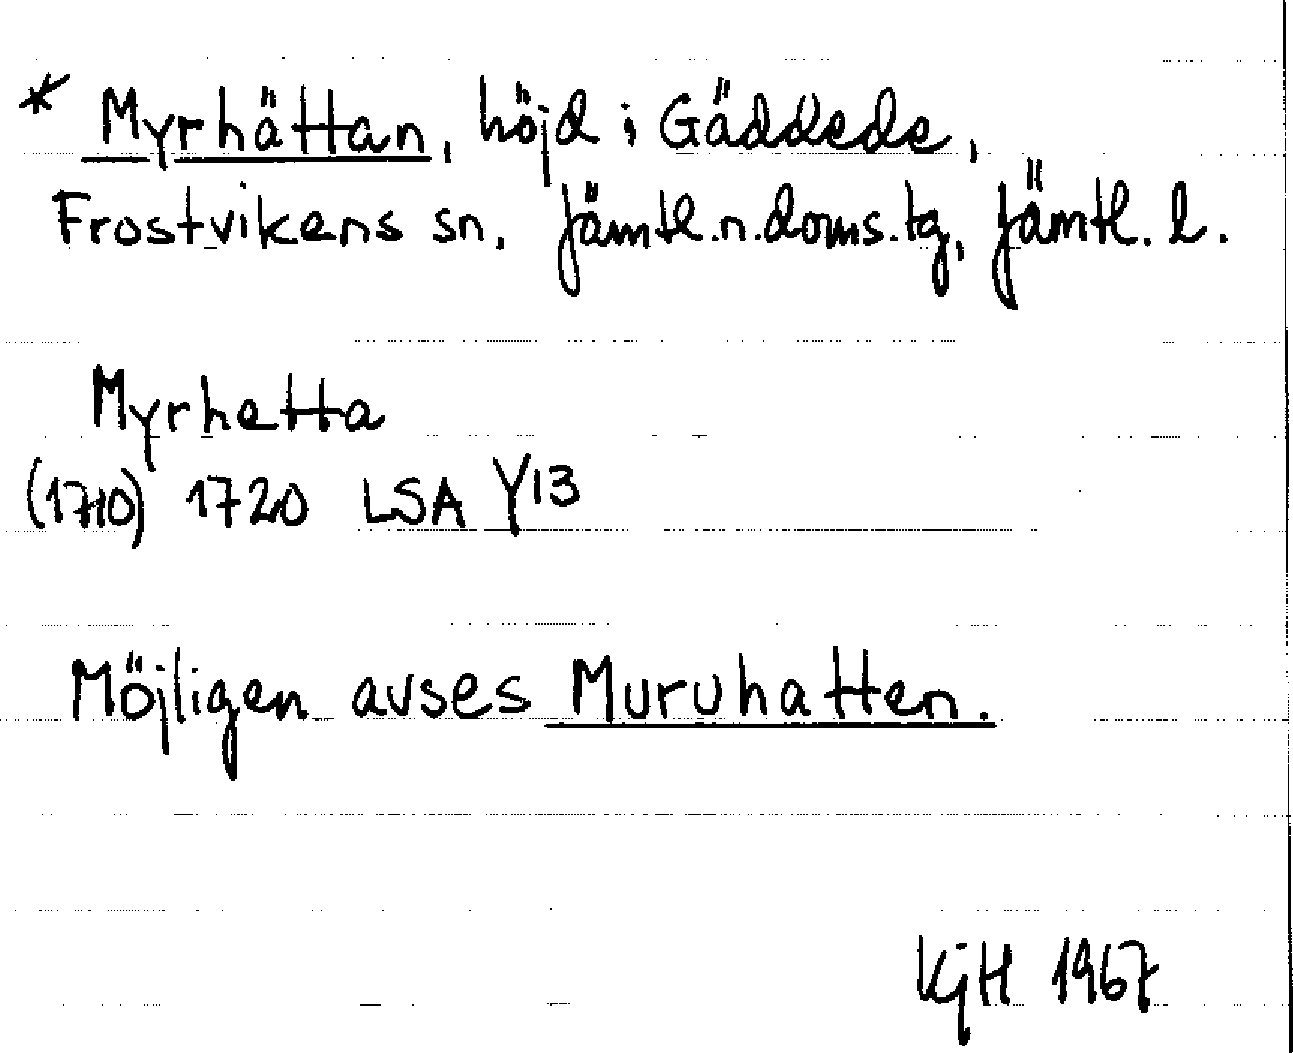 * Myrhättan, höjd i Gäddede,
Frostvikens sn. Jämtl.n.doms.tg, Jämtl. l.
Myrhetta
(1710) 1720 LSA Y13
Möjligen avses Muruhatten.
KGH 1967